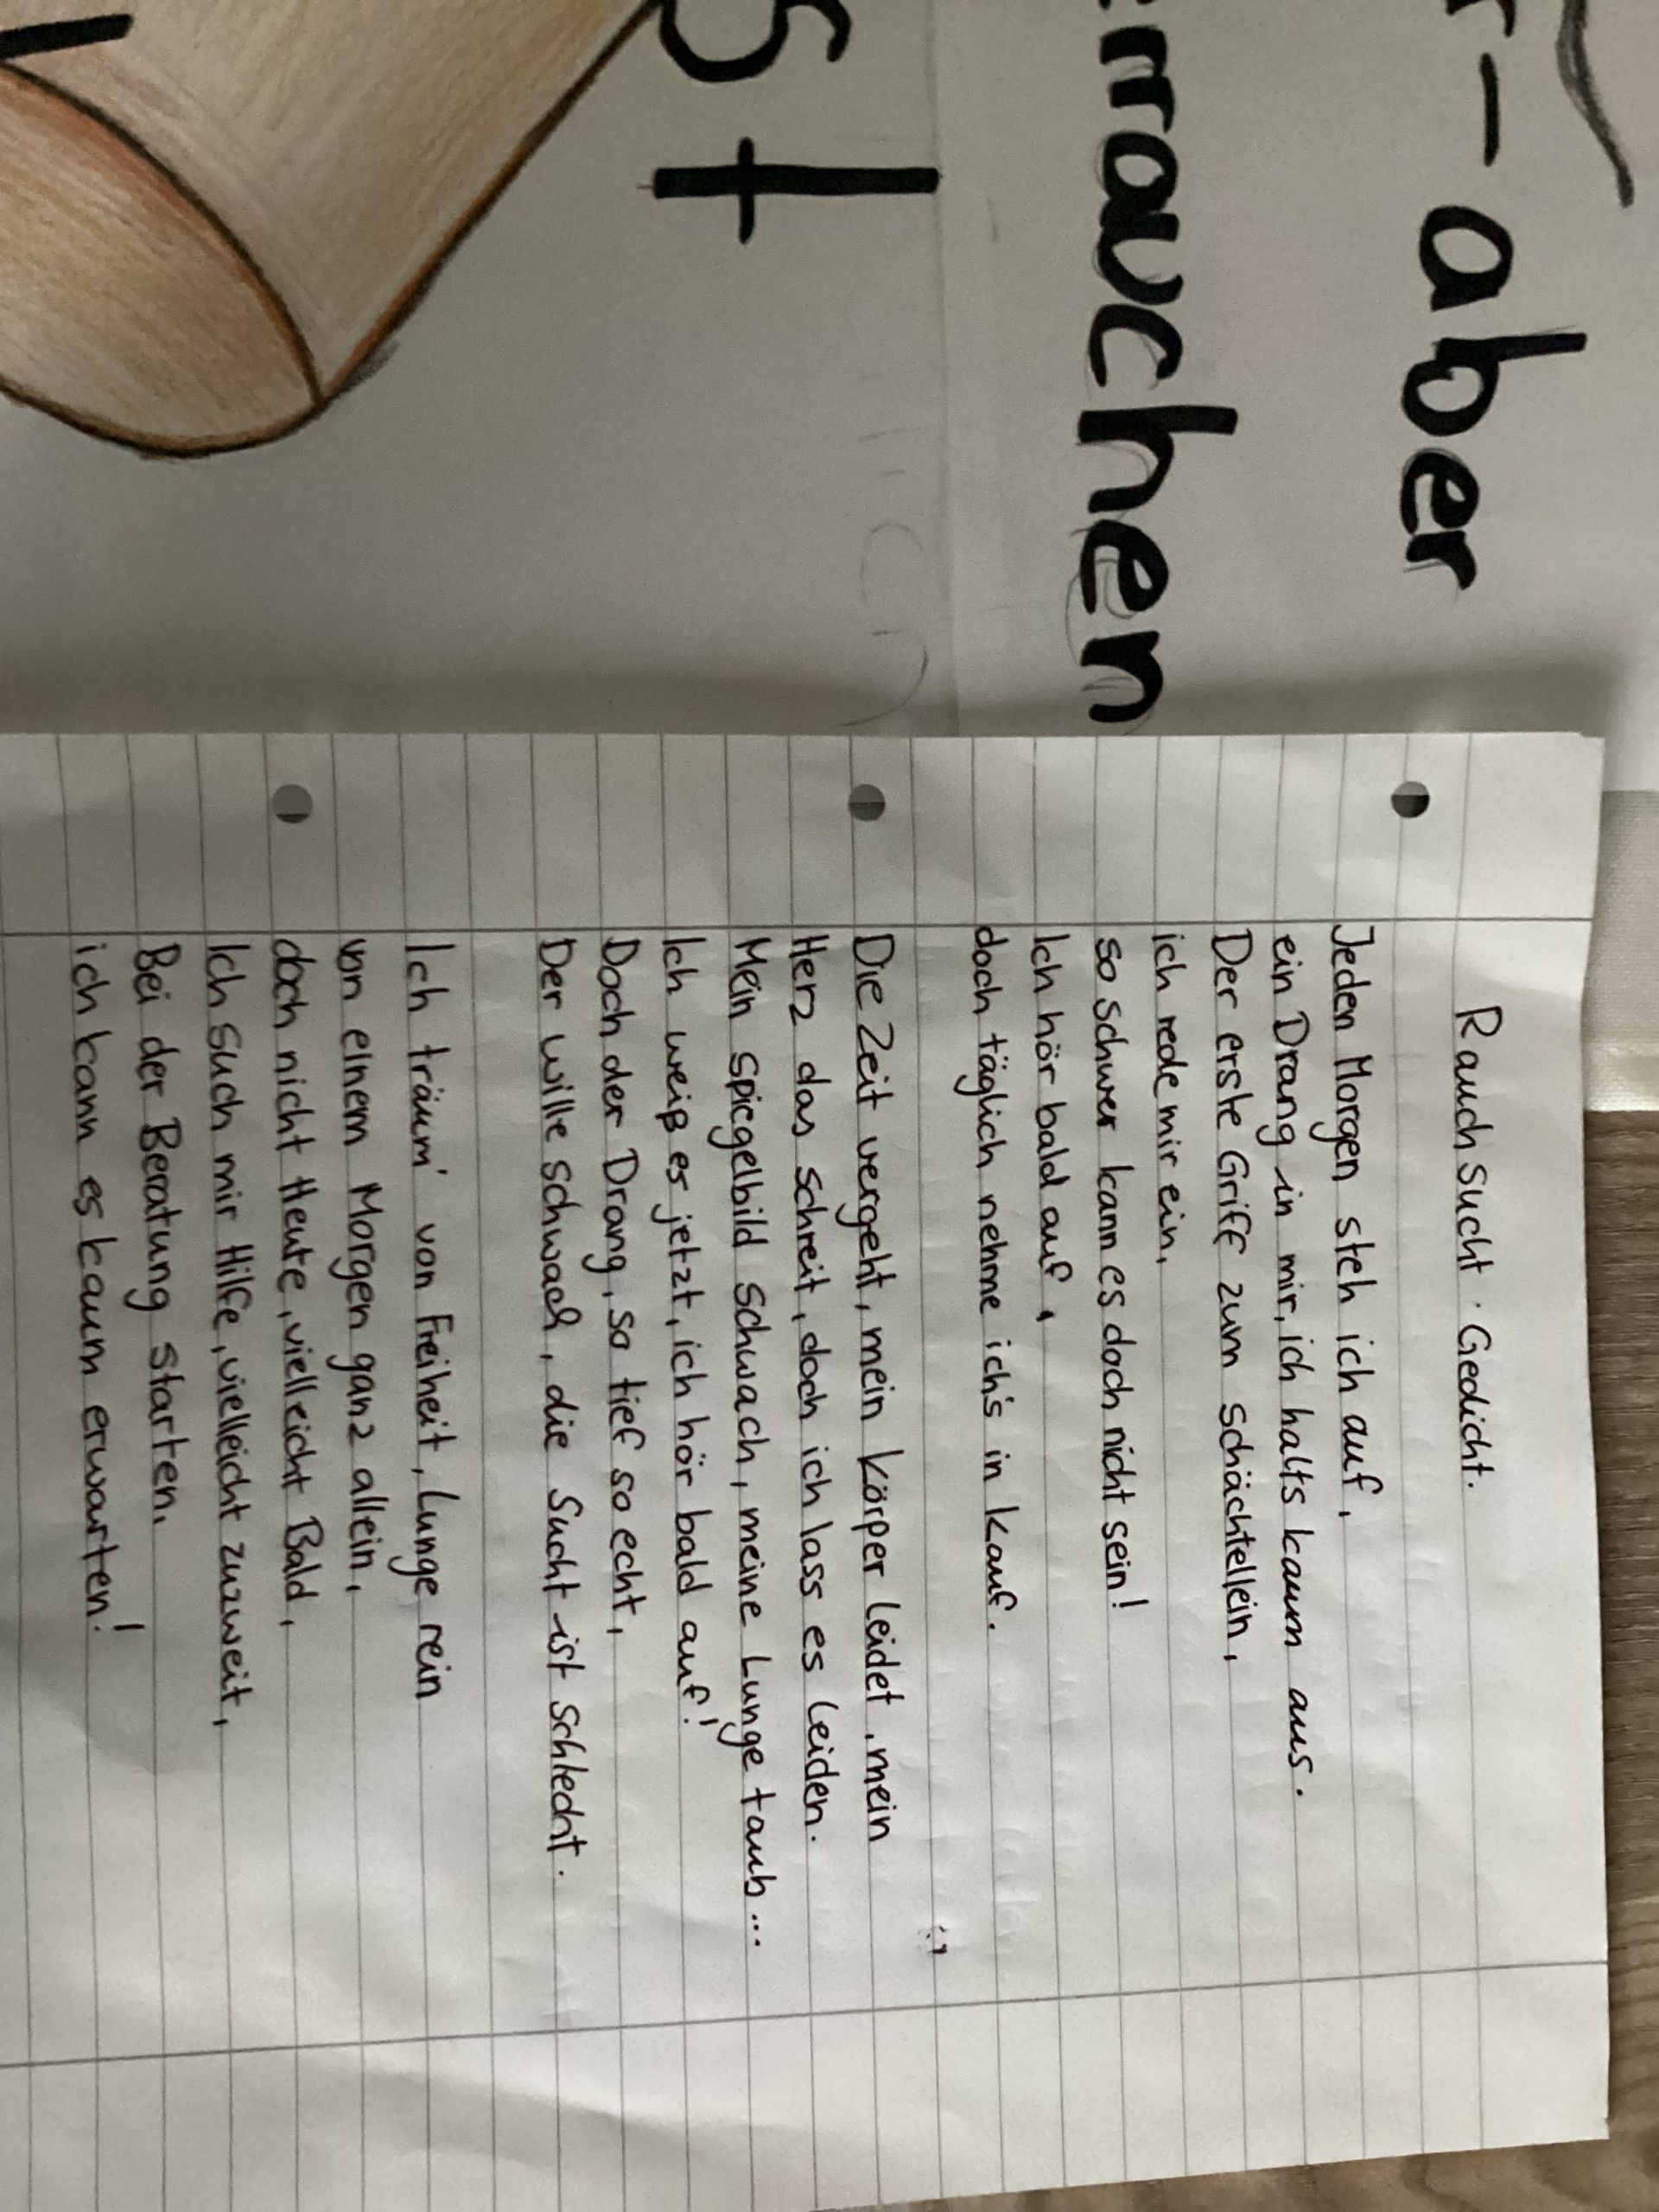 r-aber
rrauchen
st
Rauchsucht · Gedicht.
Jeden Morgen steh ich auf,
ein Drang in mir, ich halts kaum aus.
Der erste Griff zum schächtellein,
ich rede mir ein,
so schwer kann es doch nicht sein!
Ich hör bald auf,
doch täglich nehme ich's in kauf.
Die Zeit vergeht, mein Körper leidet, mein
Herz das schreit, doch ich lass es leiden.
Mein spiegelbild schwach, meine Lunge taub...
Ich weiß es jetzt, ich hör bald auf!
Doch der Drang, so tief so echt,
Der wille schwach, die Sucht ist schlecht.
Ich träum' von Freiheit, Lunge rein
von einem Morgen ganz allein,
doch nicht Heute, vielleicht Bald,
Ich such mir Hilfe, vielleicht zuweit,
Bei der Beratung starten,
ich kann es kaum erwarten!